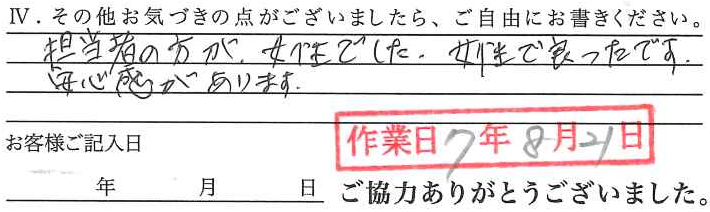 Ⅳ．その他お気づきの点がございましたら、ご自由にお書きください。
担当者の方が、女性でした。女性で良ったです。
安心感があります。
お客様ご記入日
作業日 7年 8月 21日
年 月 日 ご協力ありがとうございました。